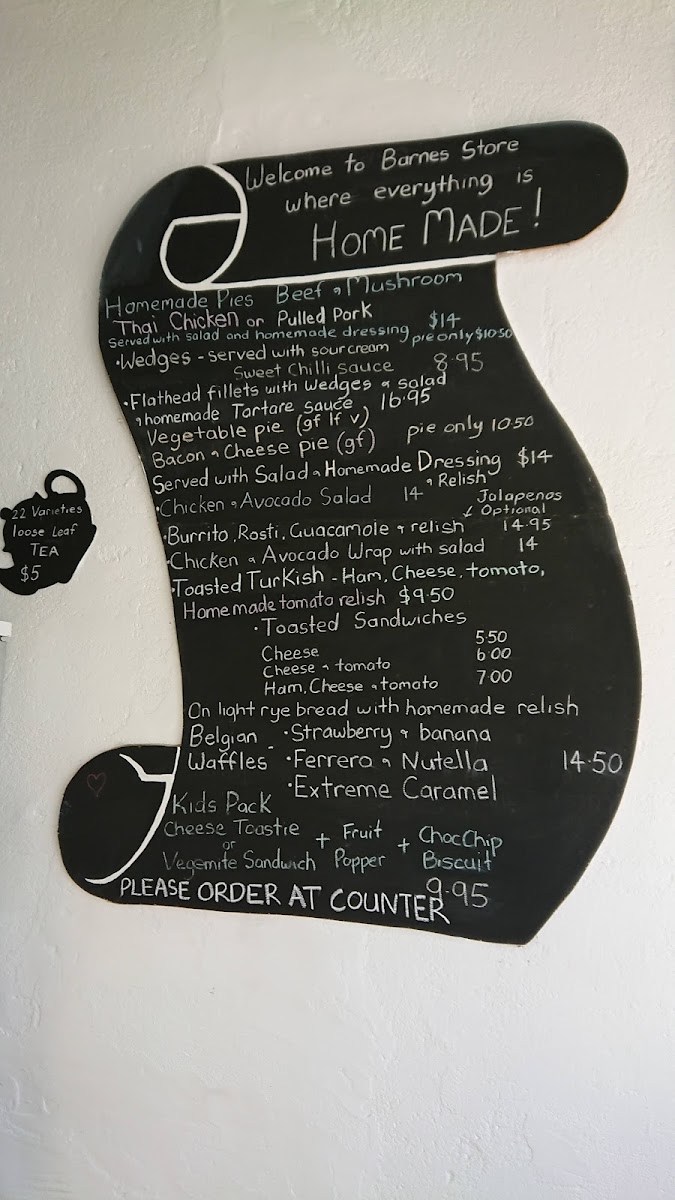 Welcome to Barnes Store
where everything is
HOME MADE!
Homemade Pies Beef & Mushroom
Thai Chicken or Pulled Pork
Served with salad and homemade dressing $14 pie only $10.50
• Wedges - served with sour cream
Sweet Chilli sauce 8.95
• Flathead fillets with wedges & salad
& homemade Tartare sauce 16.95
Vegetable pie (gf lf v)
Bacon & Cheese pie (gf) pie only 10.50
Served with Salad & Homemade Dressing $14
& Relish
• Chicken & Avocado Salad 14
Jalapenos
Optional
• Burrito, Rosti, Guacamole & relish 14.95
• Chicken & Avocado Wrap with salad 14
• Toasted Turkish - Ham, Cheese, tomato,
Homemade tomato relish $9.50
• Toasted Sandwiches
Cheese 5.50
Cheese & tomato 6.00
Ham, Cheese & tomato 7.00
On light rye bread with homemade relish
Belgian - • Strawberry & banana
Waffles • Ferrero & Nutella 14.50
• Extreme Caramel
Kids Pack
Cheese Toastie + Fruit + ChocChip
or
Vegemite Sandwich Popper Biscuit
9.95
PLEASE ORDER AT COUNTER
22 Varieties
loose Leaf
TEA
$5